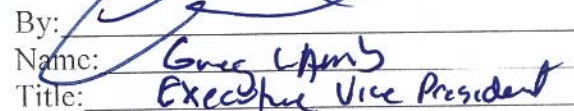 By:
Name: Greg Lamb
Title: Executive Vice President